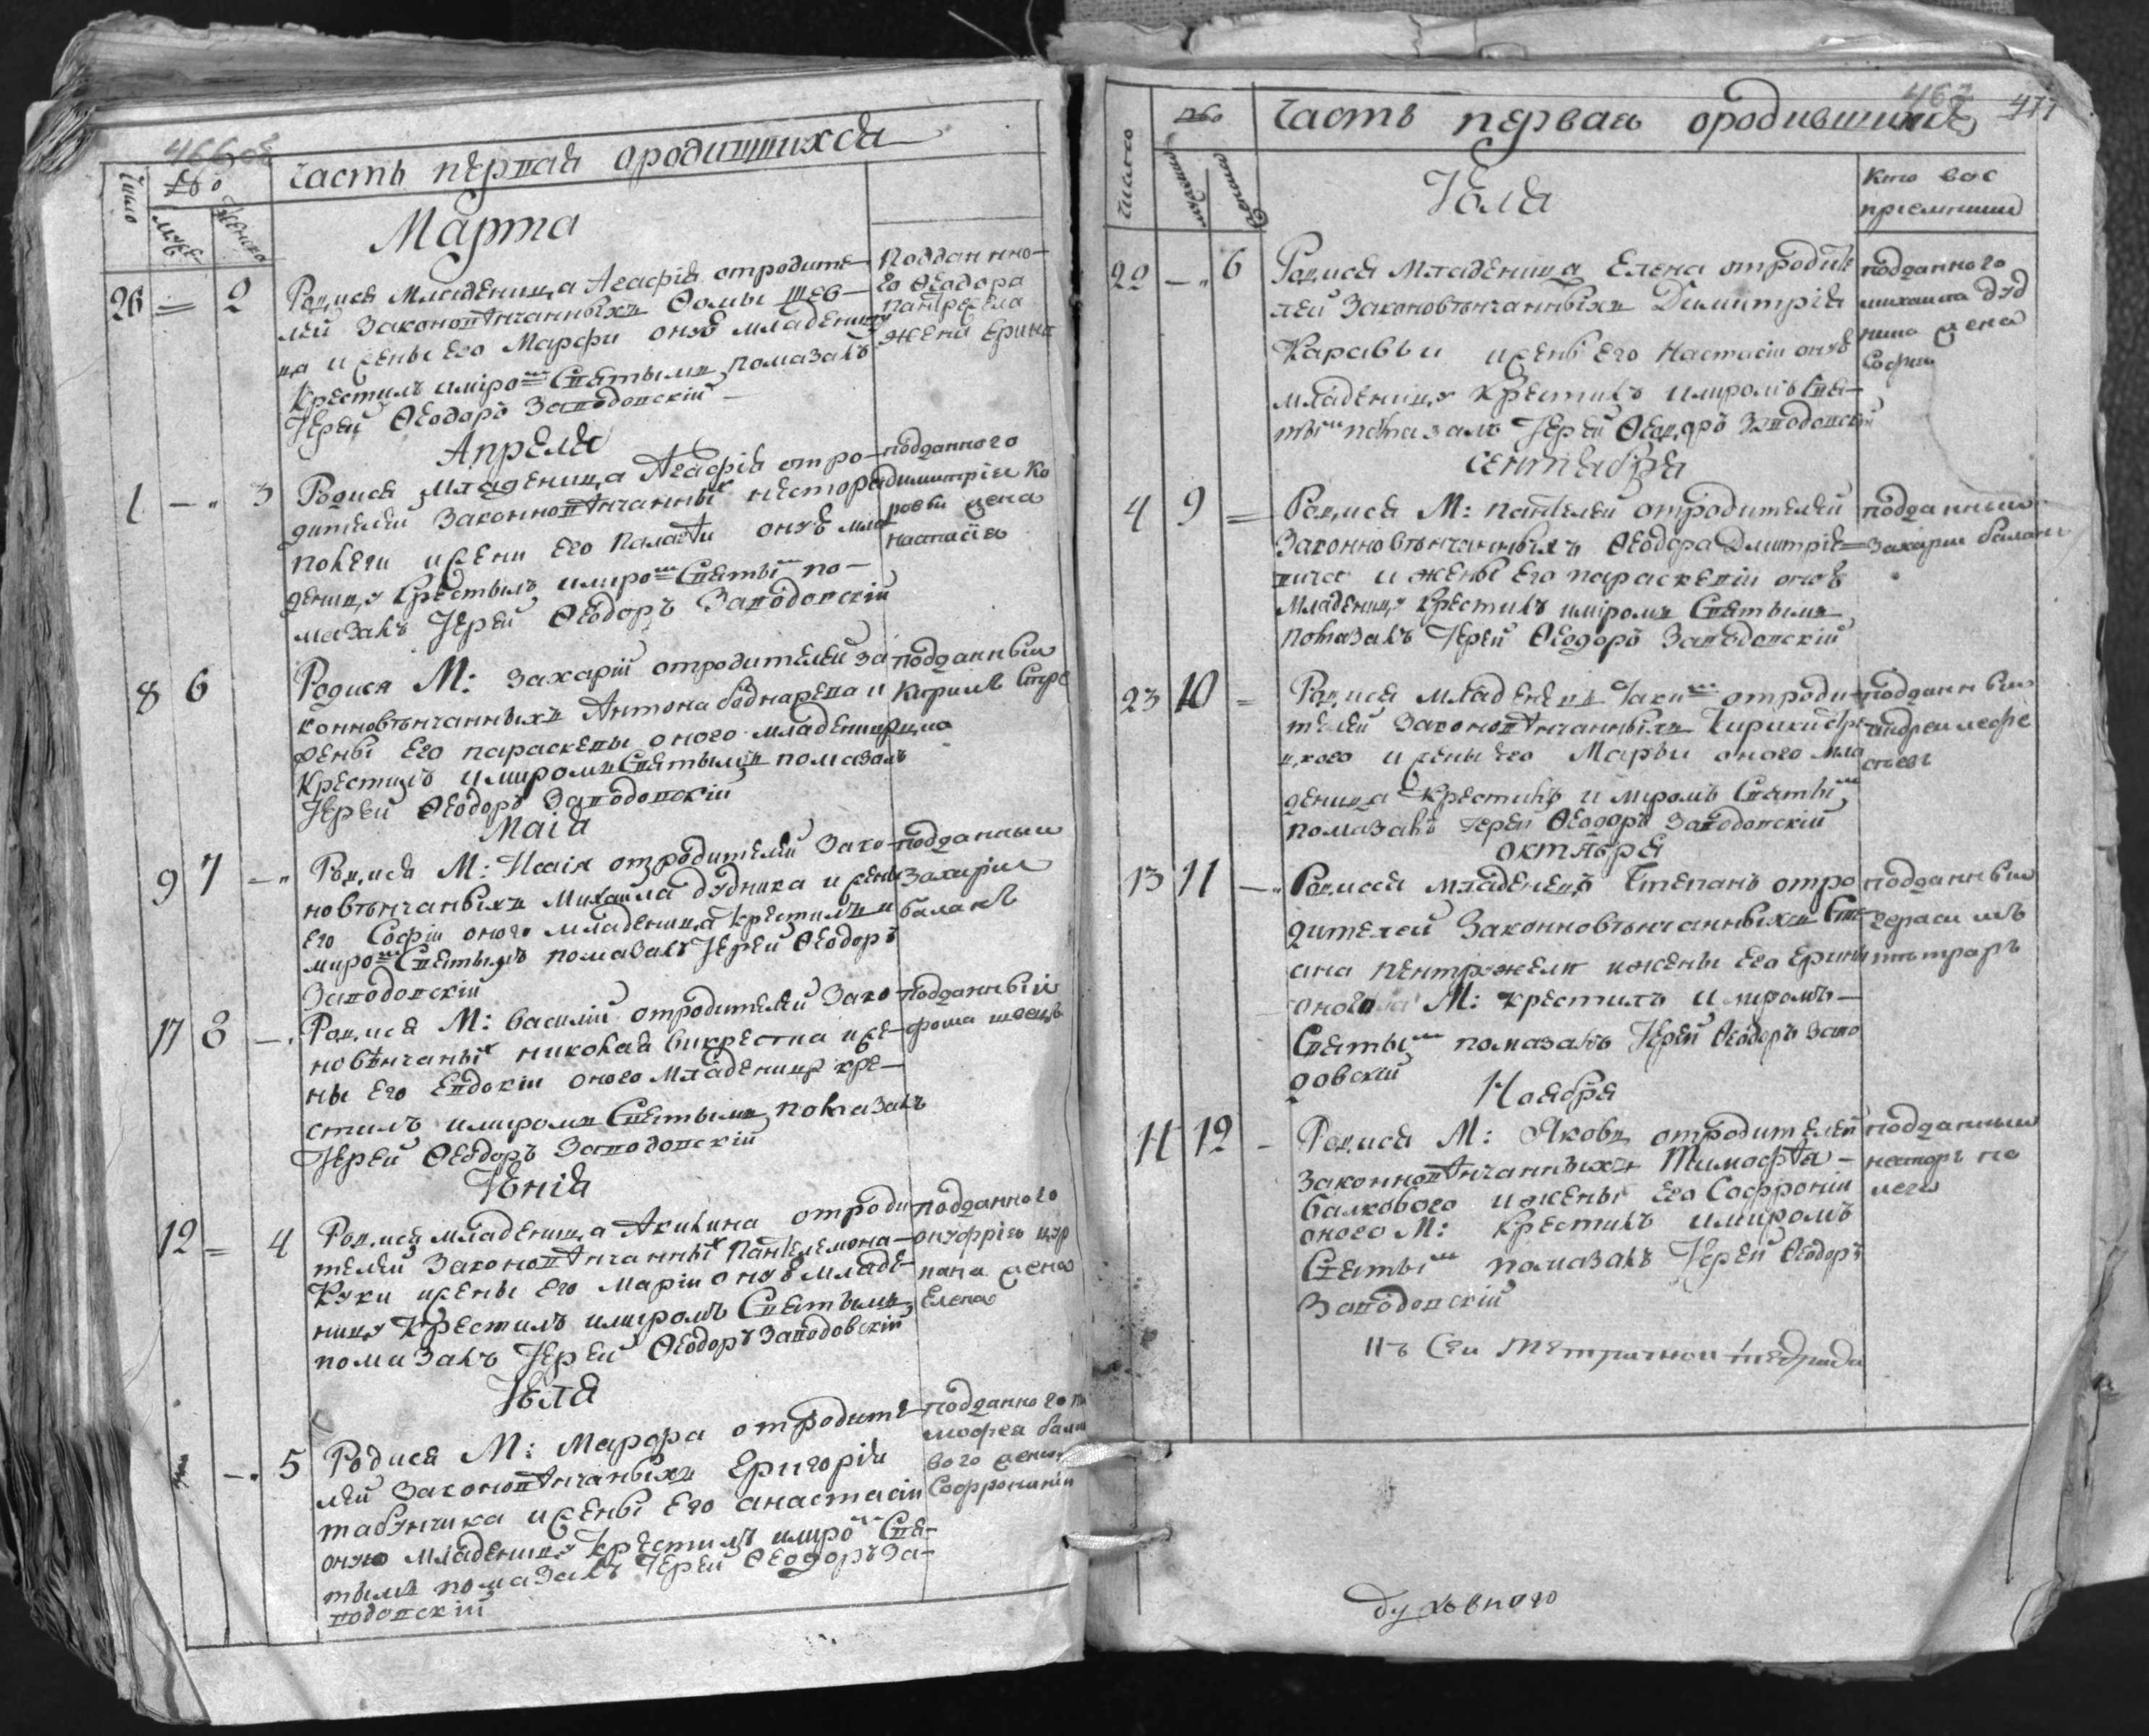 466 об
часть первая ородившихся
Число
Мужеск
Женска
Марта
26 = 2
Родися младеница Агафiя отродите-
лей законовѣнчанныхъ Ѳомы Шев-
ца и жены его Марфи онуѣ младеницу
крестилъ имiромъ Святымъ помазалъ
Iерей Ѳеодоръ Заводовскiй
Подданнно-
го Ѳеодора
жена Ерина
Апреля
1 - " 3
Родися младеница Агафiя отро-
дителей законновѣнчанныхъ нестора
жени его Палагѣи онуѣ мла
деницу крестилъ имиромъ Святымъ по-
мазалъ Iерей Ѳеодоръ Заводовскiй
подданного
димитрiя Ко
ровы жена
настасiя
8 6
Родися М: Захарiй отродителей за
конновѣнчанныхъ Антона боднарева и
жены его параскевы оного младеница
крестилъ имиромъ Святымъ помазалъ
Iерей Ѳеодоръ Заводовскiй
подданный
Кирилъ
Маiя
9 7 - "
Родися М: Исаiя отродителей зако
новѣнчаныхъ Михаила дудника и жены
его Софiи оного младеница крестилъ и
миромъ Святымъ помазалъ Iерей Ѳеодоръ
Заводовскiй
подданный
Захарiя
баланъ
17 8 -
Родися М: василiй отродителей зако
новѣнчаныхъ николая викреста и же-
ны его Евдокiи оного младеница кре-
стилъ имиромъ Святымъ помазалъ
Iерей Ѳеодоръ Заводовскiй
подданный
фома швецъ
Iюнiя
12 = 4
Родися младеница Акилина отроди
телей законовѣнчанныхъ Пантелемона
Куки жены его Марiи онуѣ младе-
ницу крестилъ имиромъ Святымъ
помазалъ Iерей Ѳеодоръ Заводовскiй
подданного
онуфрiя цур
кана жена
Елена
Iюля
- " 5
Родися М: Марфа отродите-
лей законовѣнчаныхъ Григорiя
табунчика и жены его анастасiи
оную младеницу крестилъ имиромъ Свя-
тымъ помазалъ Iерей Ѳеодоръ За-
водовскiй
подданного ти
мофея балко
вого жена
Софронiя
467
477
Часть первая ородившихся
Число
мужеска
женска
Iюля
Кто вос
прiемники
22 - " 6
Родися младеница Елена отродите
лей законовѣнчанныхъ Димитрiя
Каравьи жены его Настасiи онуѣ
младеницу крестилъ имиромъ Свя-
тымъ помазалъ Iерей Ѳеодоръ Заводовскiй
подданного
михаила дуд
ника жена
София
сентября
4 9 =
Родися М: пантелей отродителей
законновѣнчанныхъ Ѳеодора Дмитрiе-
вича и жены его параскевiи онаго
младеница крестилъ имiромъ Святымъ
помазалъ Iерей Ѳеодоръ Заводовскiй
подданный
Захария баланъ
23 10 =
Родися младенецъ Iакимъ отроди-
телей законовѣнчанныхъ Кирила
и жены его Марьи оного мла
деница крестилъ и миромъ Святымъ
помазалъ Iерей Ѳеодоръ Заводовскiй
подданный
андрей
октября
13 11 - "
Родися младенецъ Степанъ отро
дителей законновѣнчанныхъ Сте
ана и жены его Ерины
оного М: крестилъ и миромъ
Святымъ помазалъ Iерей Ѳеодоръ Заво
довскiй
подданный
герасимъ
Ноября
11 12 -
Родися М: Яковъ отродителей
законновѣнчанныхъ Тимофѣя
балкового и жены его Софронiи
оного М: крестилъ имиромъ
Святымъ помазалъ Iерей Ѳеодоръ
Заводовскiй
подданный
несторъ по
лега
Къ Сей Метричной тедради
духовного